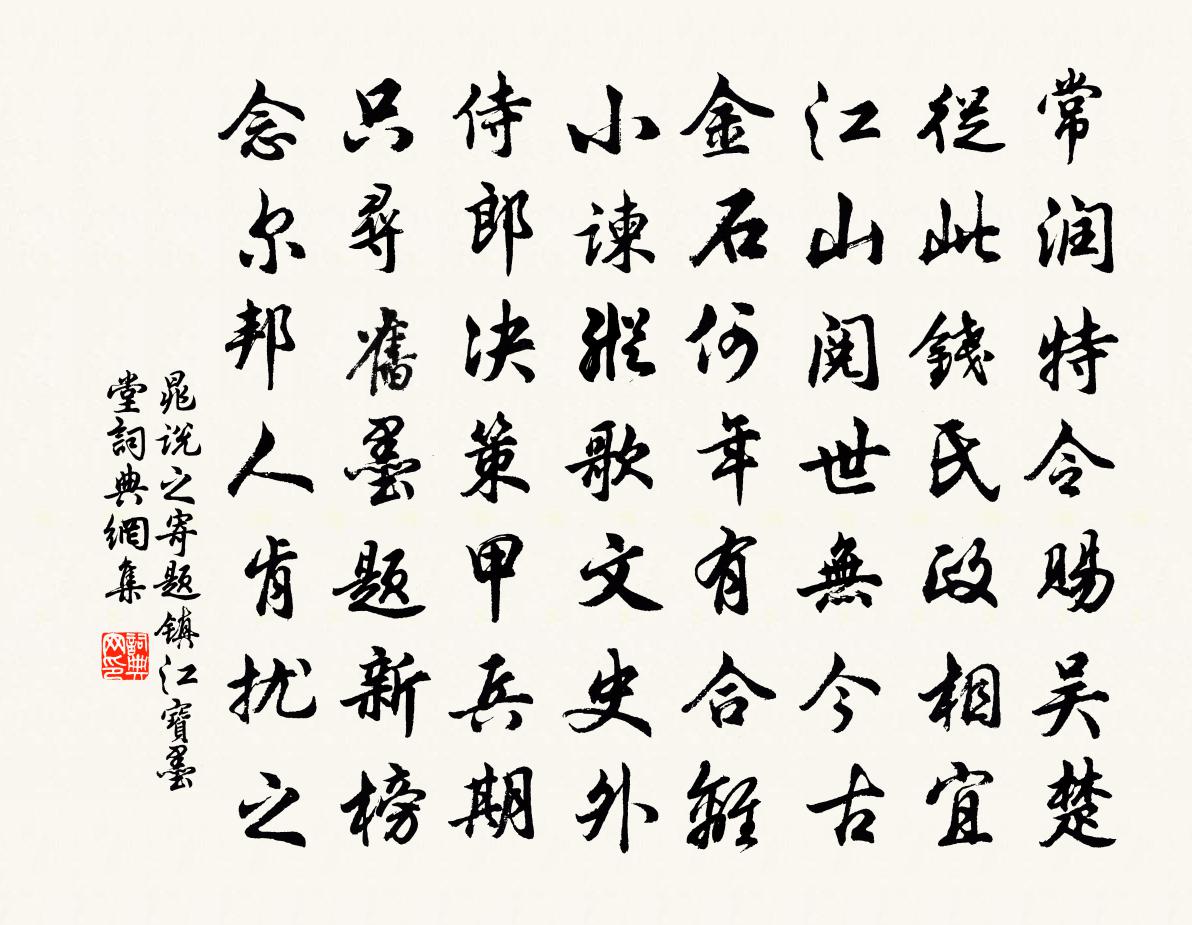 常润特令賜吴楚
從此錢民政相宜
江山閱世無今古
金石何年有合離
小諫縱歌文史外
侍郎決策甲兵期
只尋舊墨題新榜
念尔邦人肯扰之
晁说之寄題鎮江寶墨
堂詞典網集
詞典
网印